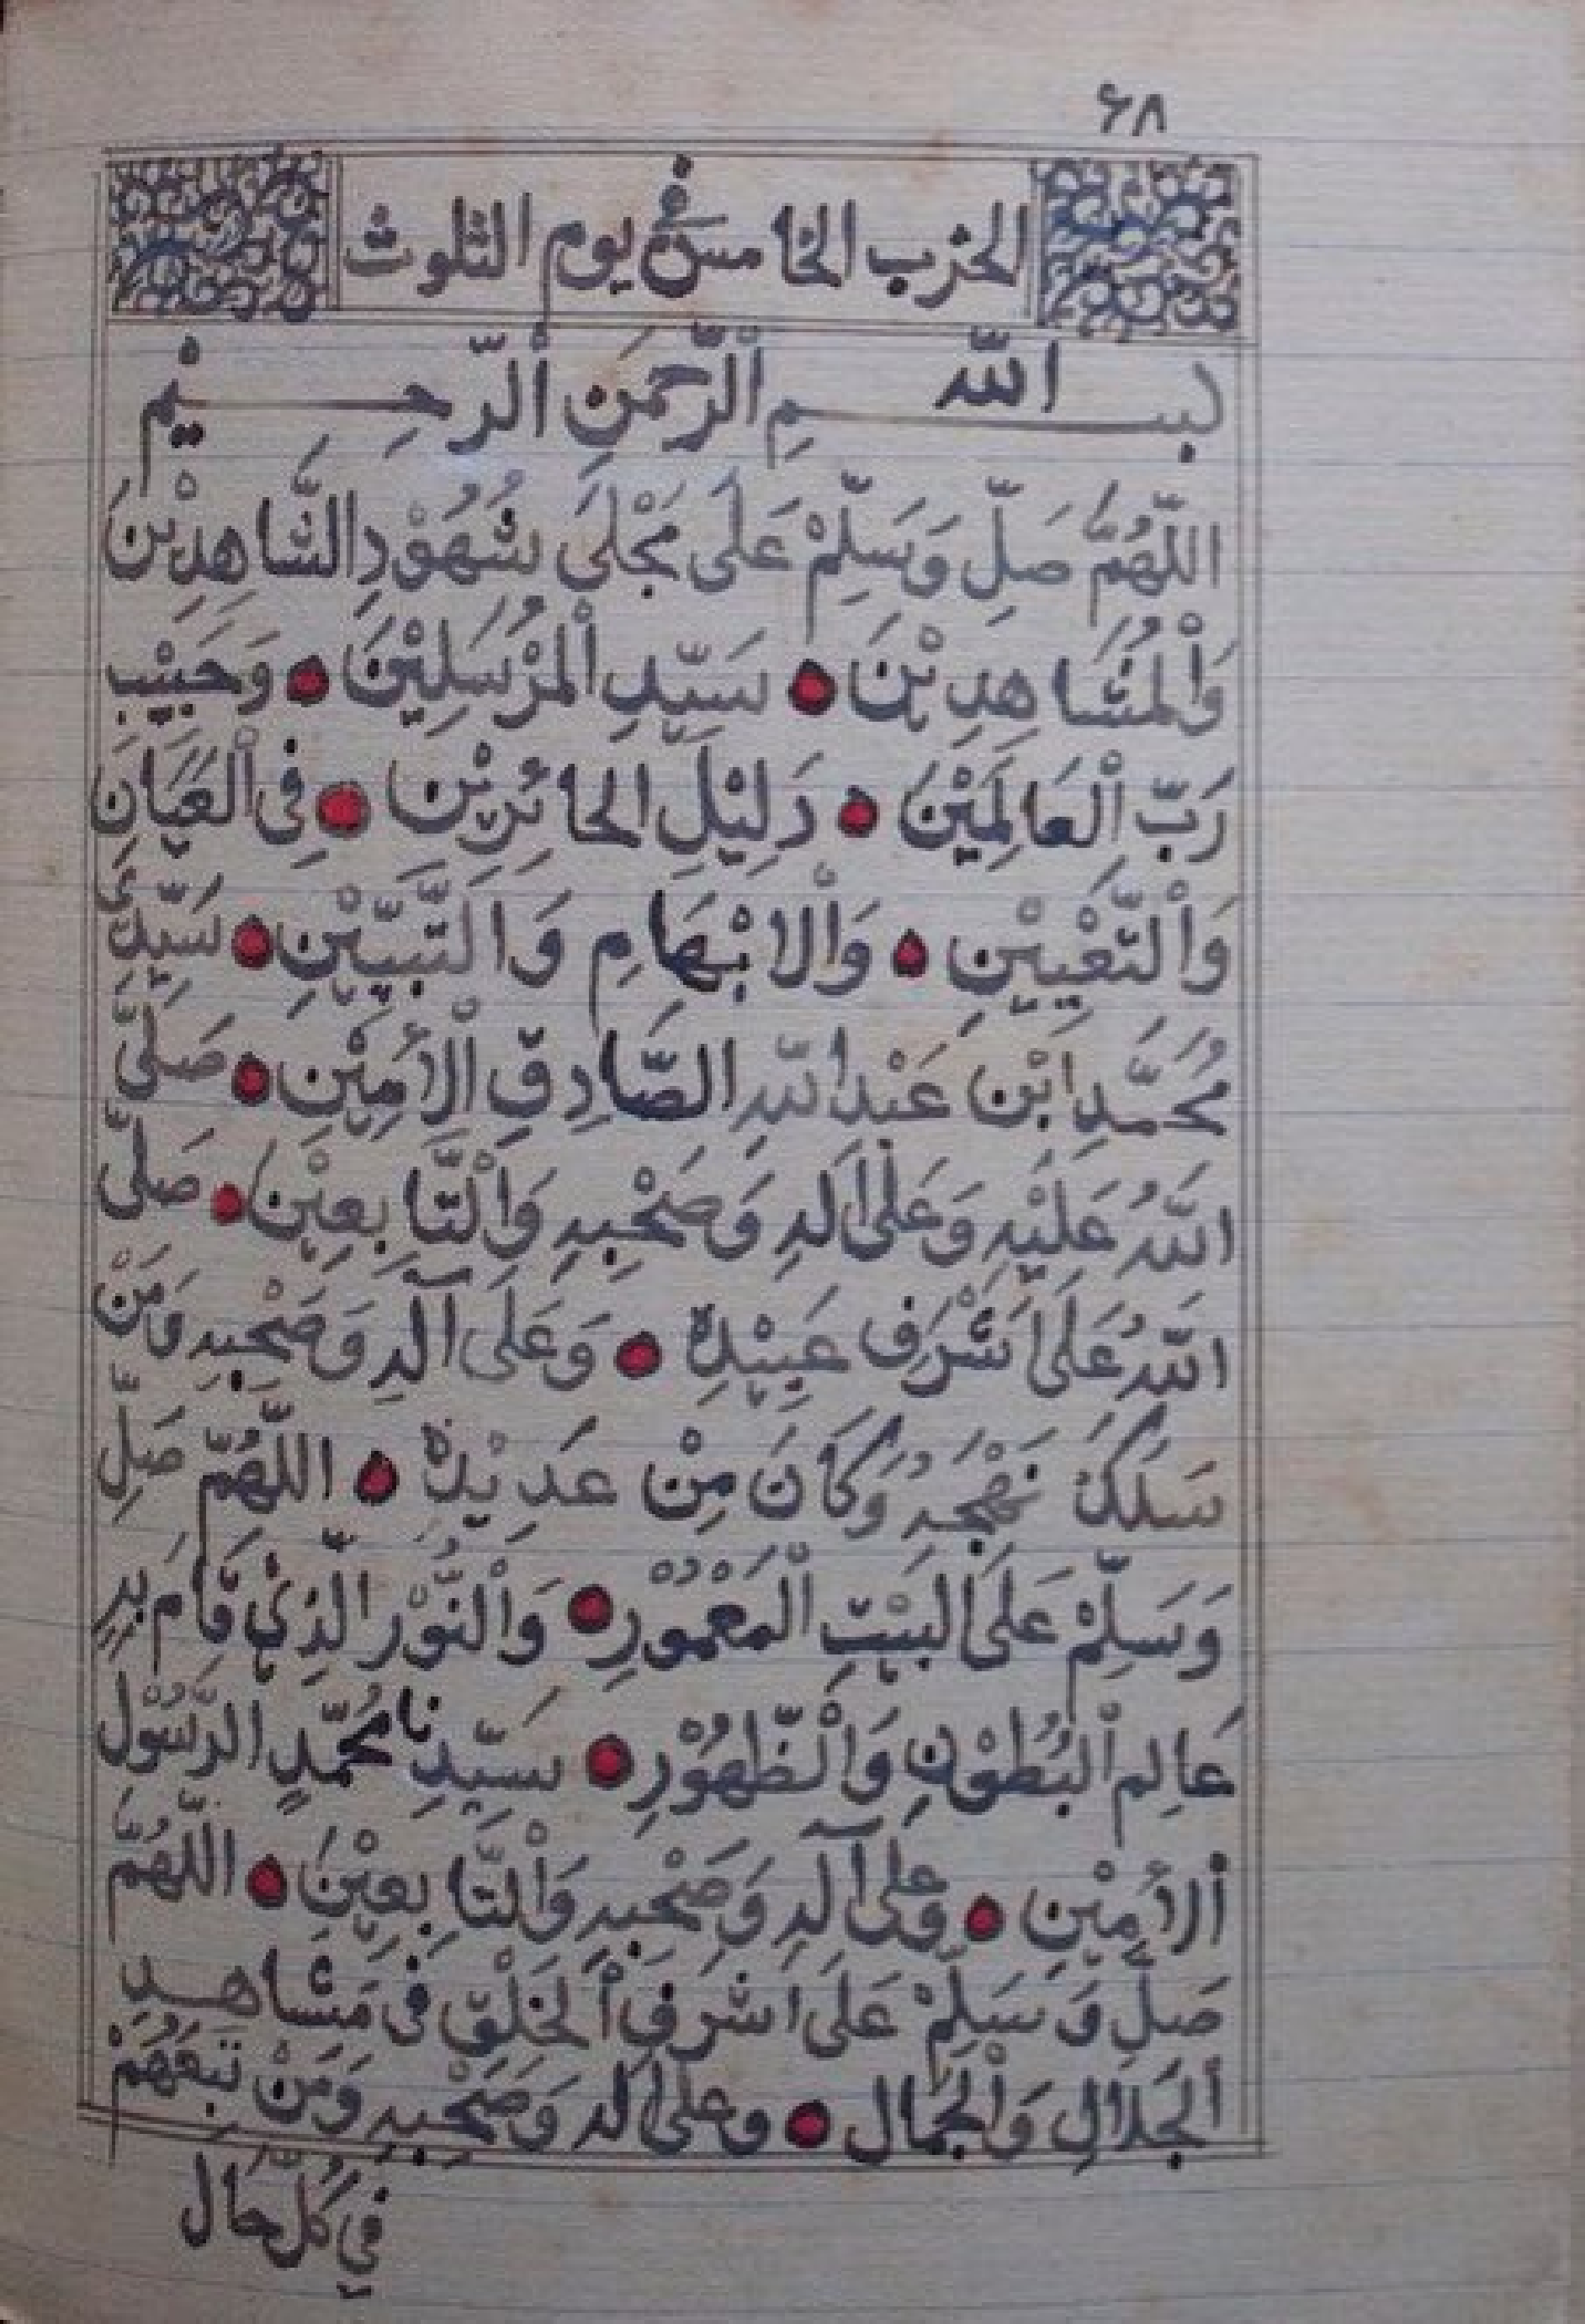 ۶۸
الحزب الخامس في يوم الثلوث
بسم الله الرحمن الرحيم
اللّهُمَّ صَلِّ وَسَلِّمْ عَلَى مَجْلَى شُهُوْدِ الشَّاهِدِيْنَ
وَالْمُشَاهِدِيْنَ ● سَيِّدِ الْمُرْسَلِيْنَ ● وَحَبِيْبِ
رَبِّ الْعَالَمِيْنَ ● دَلِيْلِ الحَائِرِيْن ● فِى الْعَيَانِ
وَالْتَّعْيِيْنِ ● وَالْابْهَامِ وَالتَّبْيِيْنِ ● سَيِّدِىّ
مُحَمَّدِ ابْنِ عَبْدِ اللّهِ الصَّادِقِ الْأَمِيْنِ ● صَلَّىّ
اللّهُ عَلَيْهِ وَعَلَى اَلِهِ وَصَحْبِهِ وَالْتَّابِعِيْن ● صَلىّ
اللّهُ عَلَى اَشْرَفِ عَبِيْدِهْ ● وَعَلَى آلِهِ وَصَحْبِهِ وَمَنْ
سَلَكَ نَهْجَهُ وَكَانَ مِنْ عَدِيْدِهْ ● اللّهُمَّ صَلِّ
وَسَلِّمْ عَلَى البَيْتِ الْمَعْمُوْرِ ● وَالْنُّوْرِ الَّذِيْ قَامَ بِهِ
عَالِم الْبُطُوْنِ وَالْظُّهُوْرِ ● سَيِّدِنا مُحَمَّدٍ الرَّسُوْلِ
اْلأَمِيْنِ ● وعَلى آلِهِ وَصَحْبِهِ وَالْتَّابِعِيْنَ ● اللّهُمَّ
صَلِّ وَسَلِّمْ عَلَى اَشْرَفِ الْخَلْقِ فى مَشَاهِدِ
الْجَلَالِ وَالْجَمَال ● وعَلى اَلهِ وَصَحْبِهِ وَمَنْ تَبِعَهُمْ
في كُلّ حَال